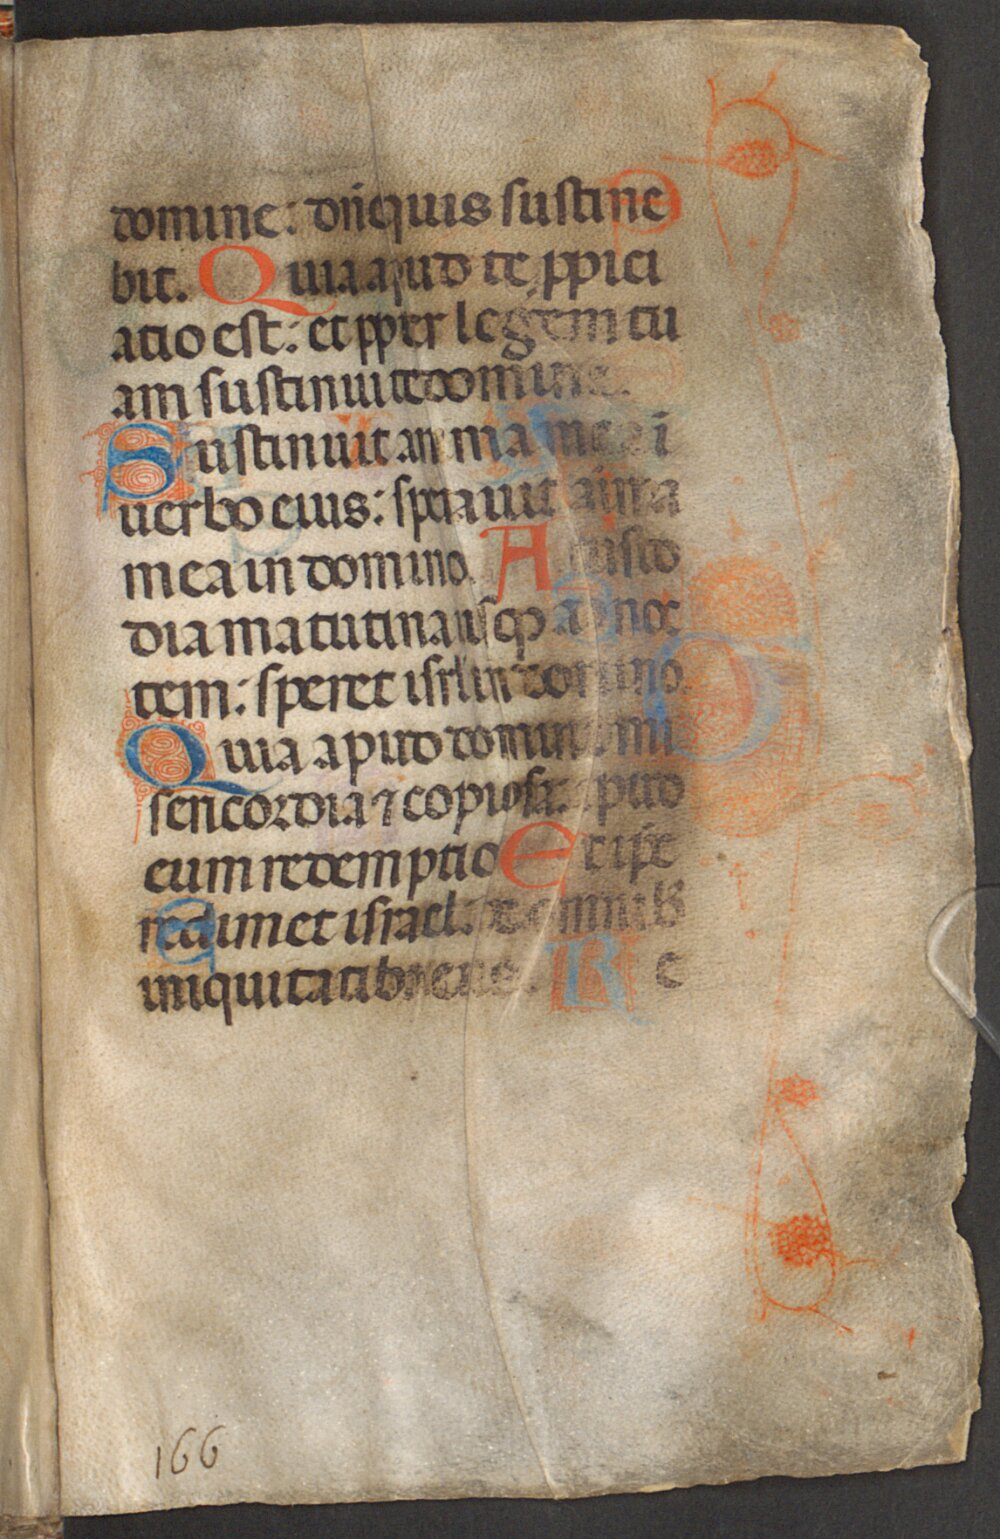 domine: dn̄e quis sustine
bit. Quia apud te ꝓpici
atio est: et ꝓpter legem tu
am sustinui te domine.
Sustinuit aīma mea ī
uerbo eius: sperauit aīma
mea in domino. A custo
dia matutina usqꝫ ad noc
tem: speret isrl in domino.
Quia apud dominum mi
sericordia ⁊ copiosa: apud
eum redemptio Et ipse
redimet israel: ex omnibꝫ
iniquitatibus eius. Re
166